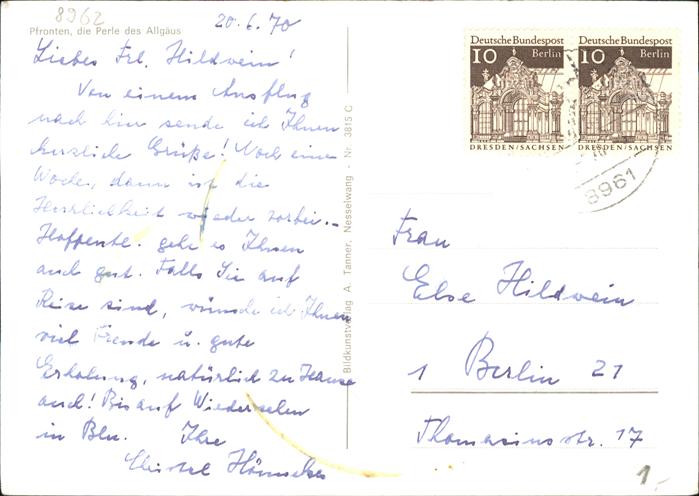 8962
Pfronten, die Perle des Allgäus
20.6.70
Liebes Frl. Hildwein!
Von einem Ausflug
nach hier sende ich Ihnen
herzliche Grüße! Noch eine
Woche, dann ist die
Herrlichkeit wieder vorbei.-
Hoffentl. geht es Ihnen
auch gut. Falls Sie auf
Reise sind, wünsche ich Ihnen
viel Freude u. gute
Erholung, natürlich zu Hause
auch! Bis auf Wiedersehen
in Bln. Ihre
Christel
Bildkunstverlag A. Tanner, Nesselwang - Nr. 3815 C
Deutsche Bundespost
10 Berlin
DRESDEN/SACHSEN
Deutsche Bundespost
10 Berlin
DRESDEN/SACHSEN
8961
Frau
Else Hildwein
1 Berlin 21
Thomasiusstr. 17
1,-